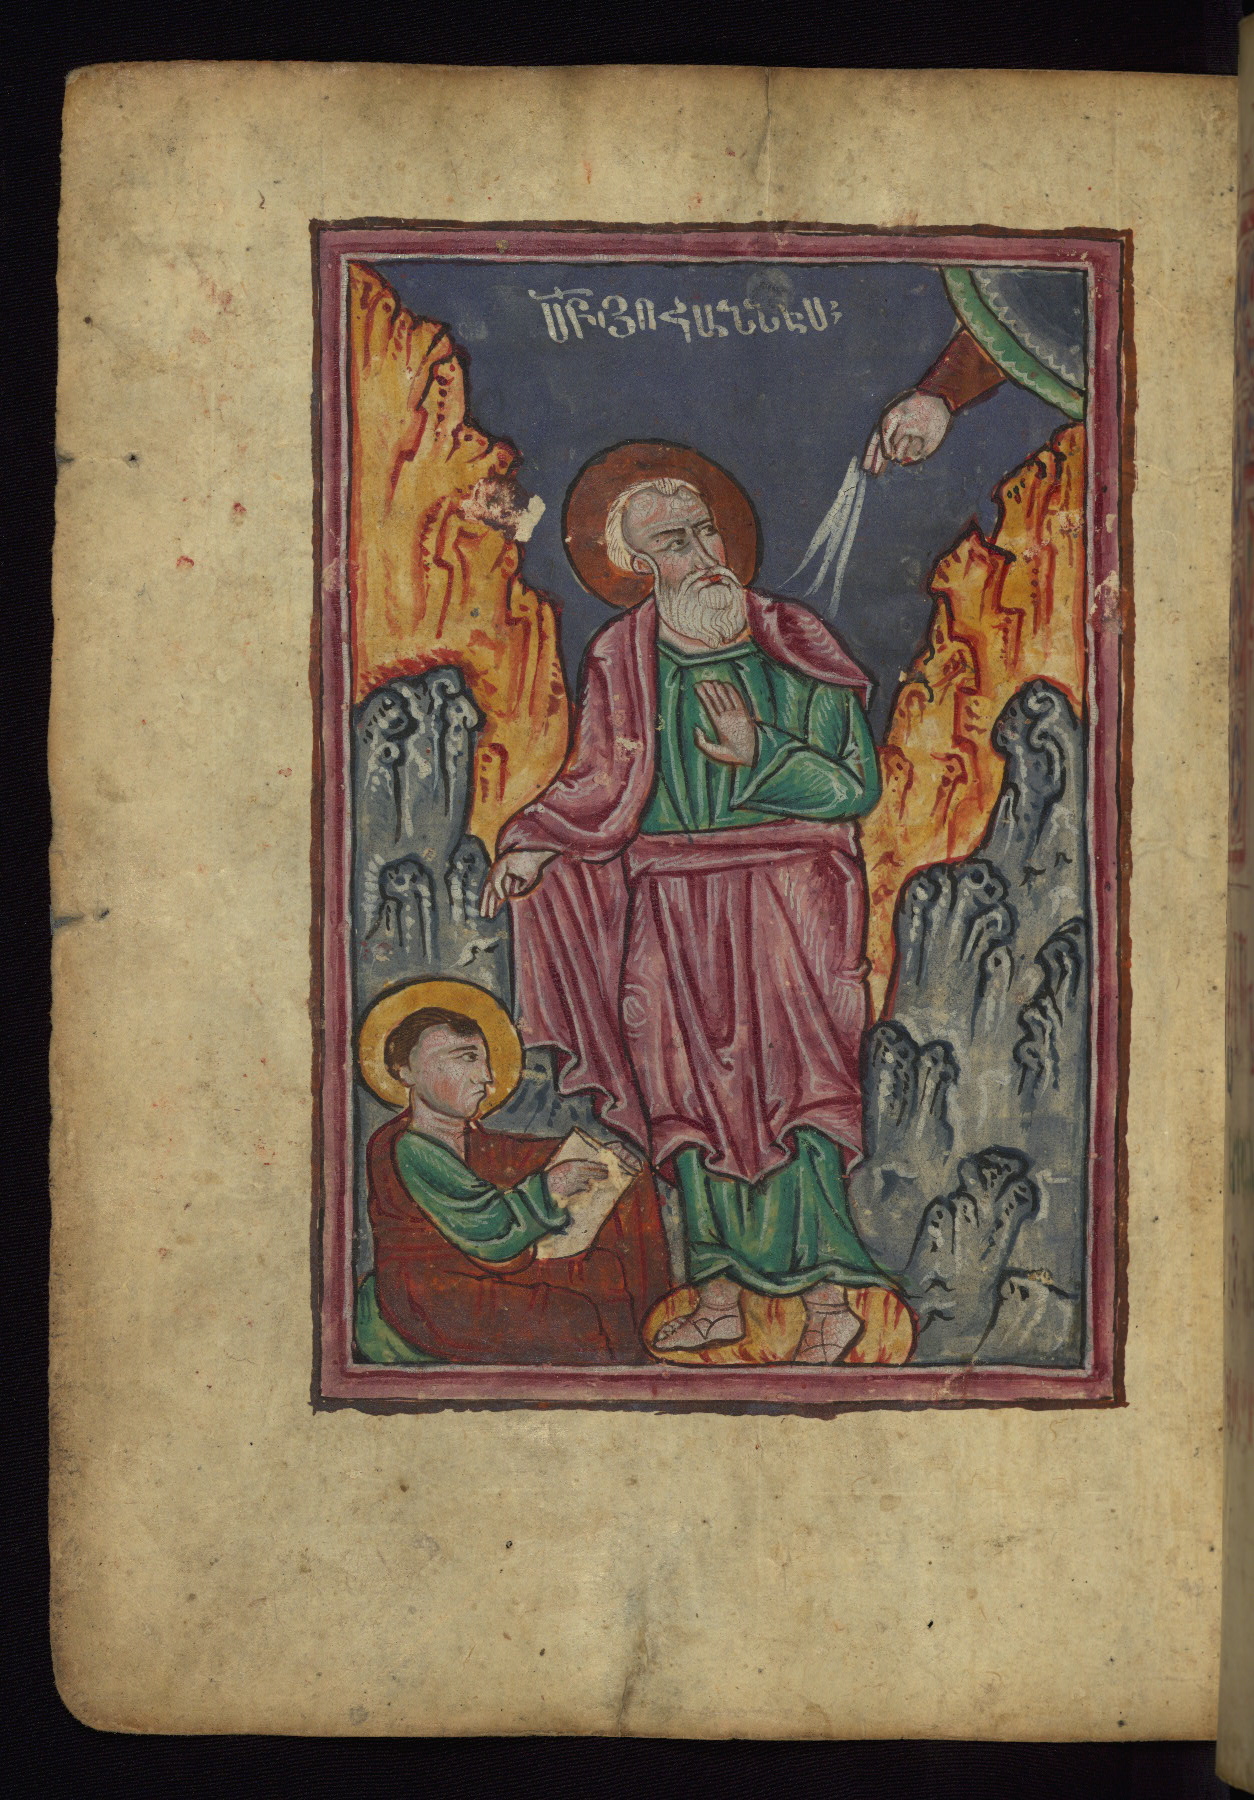 ՍԲ ՅՈՀԱՆՆԷՍ։